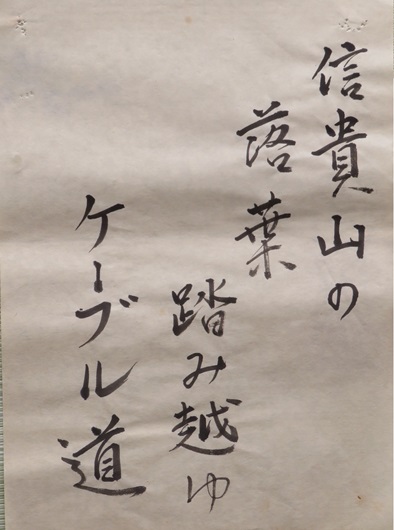 信貴山の
落葉
踏み越ゆ
ケーブル道